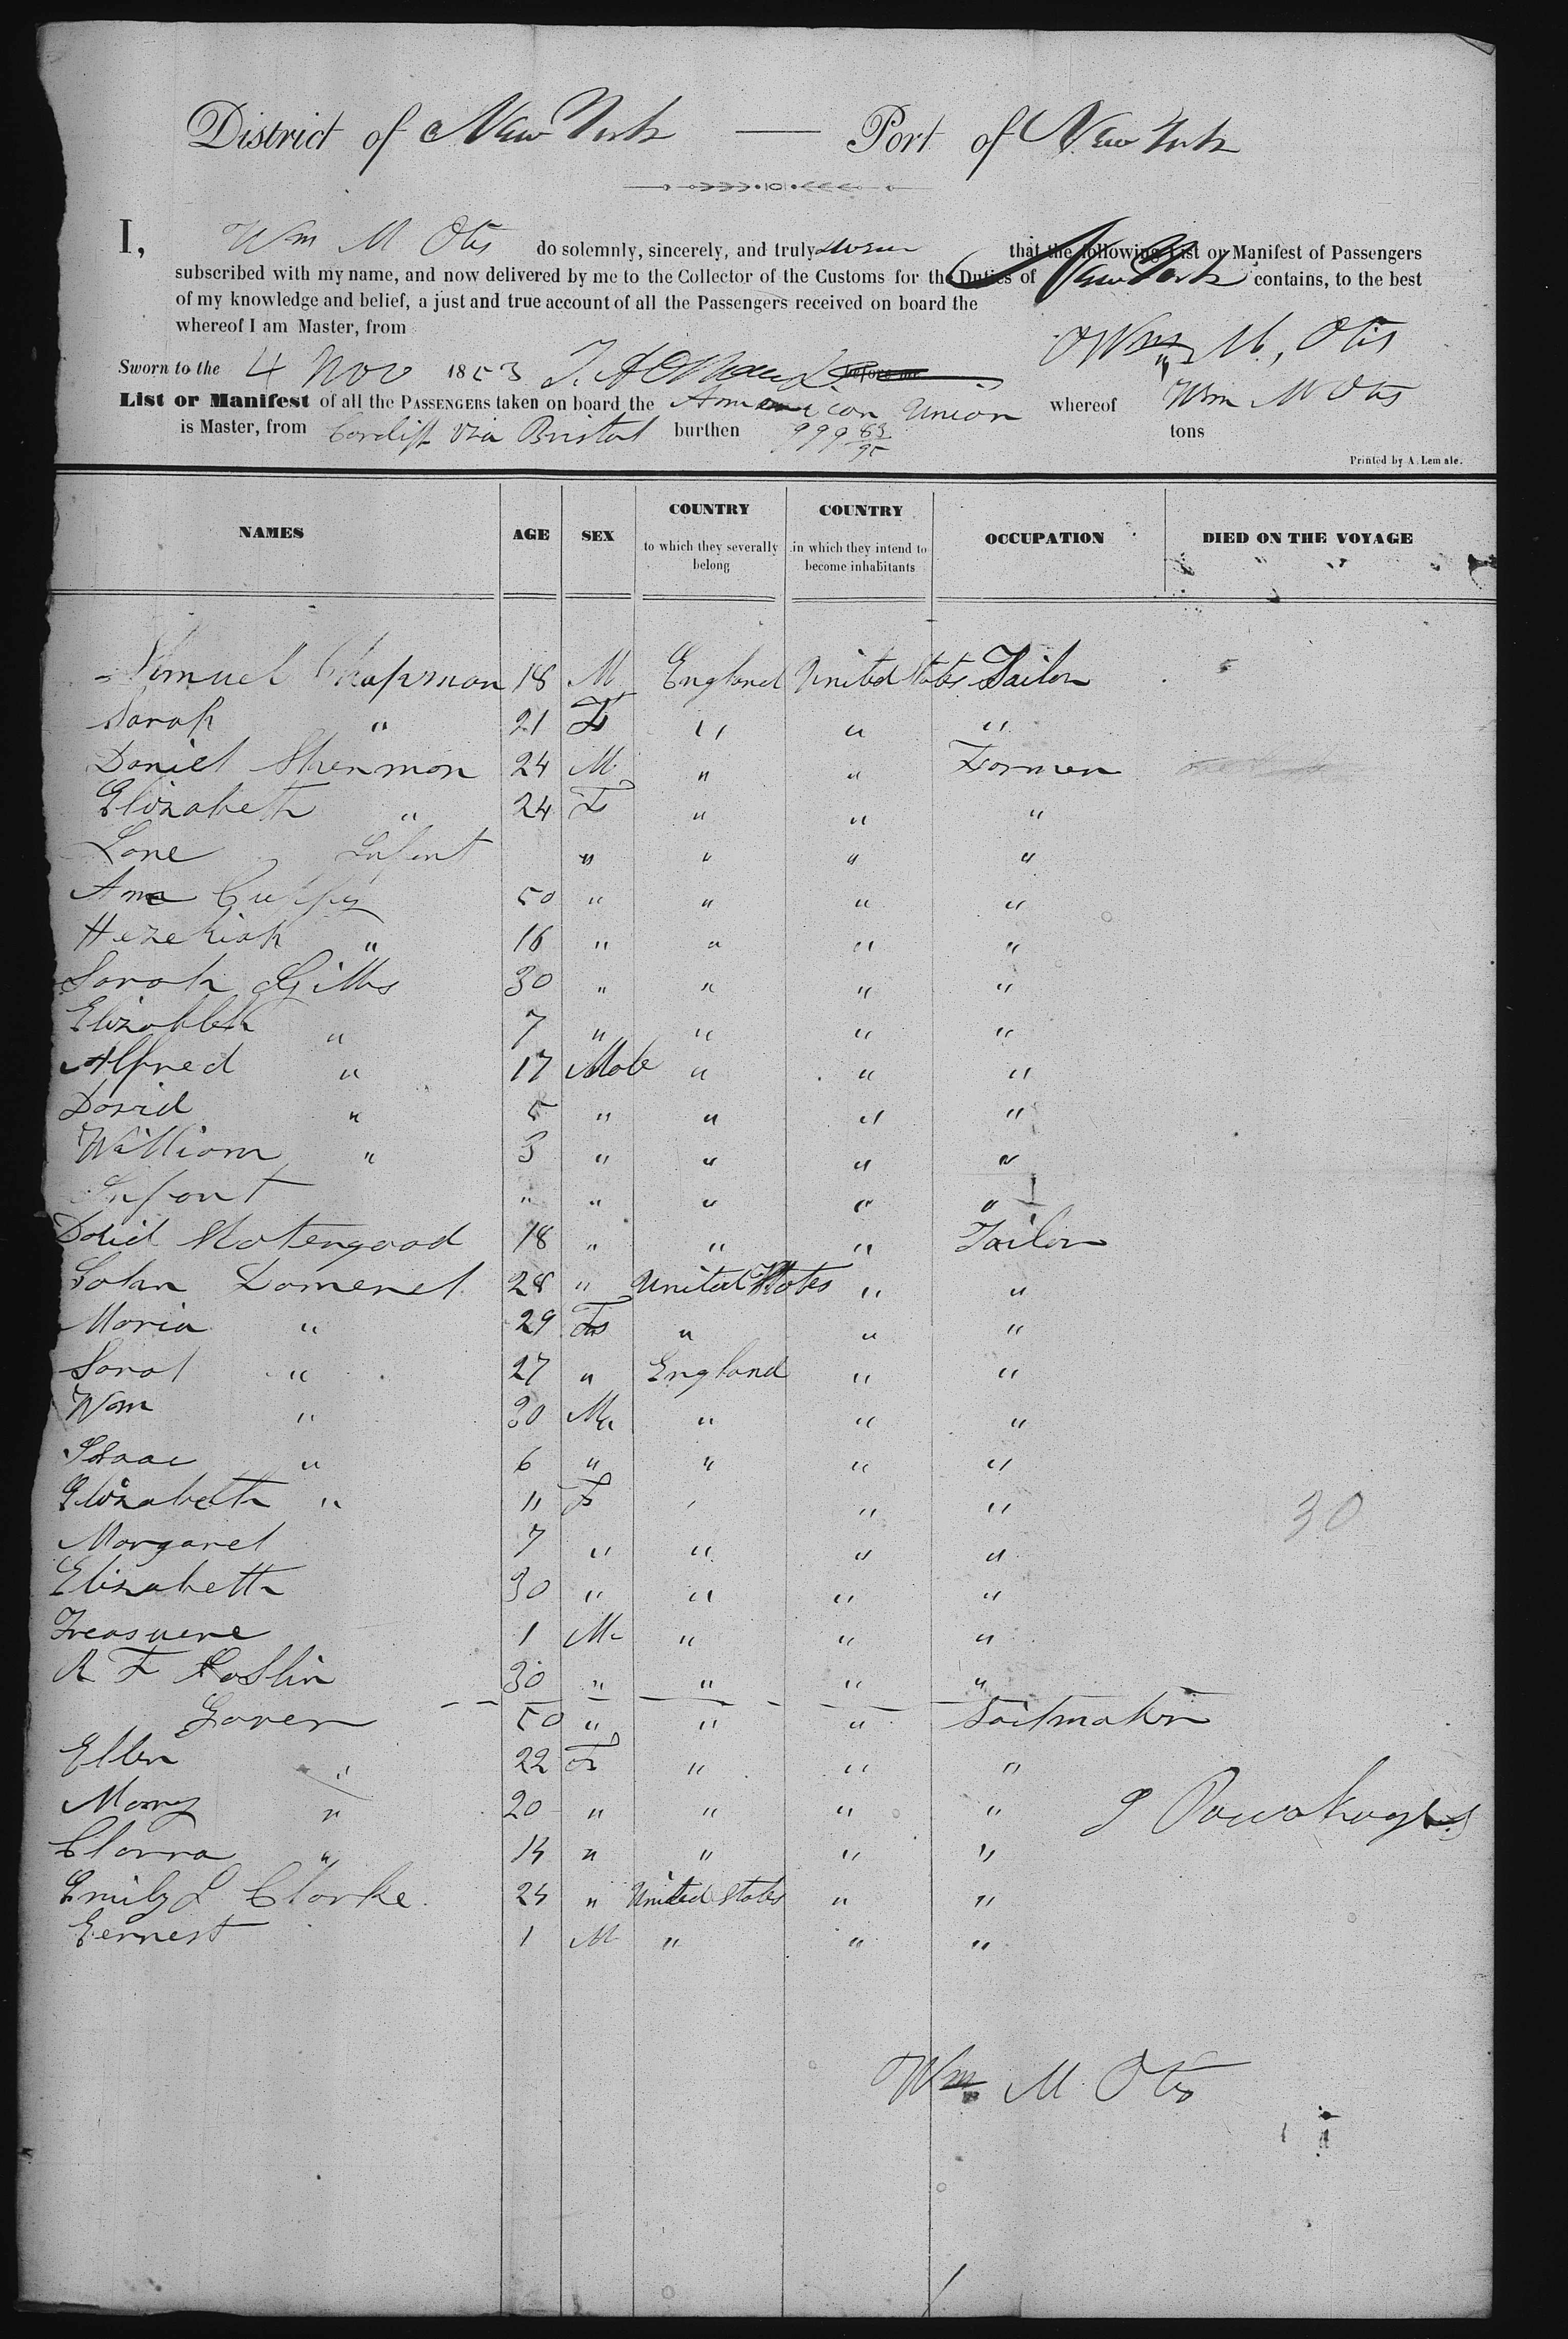 District of New York — Port of New York
I, Wm M Otis do solemnly, sincerely, and truly swear that the following List or Manifest of Passengers
subscribed with my name, and now delivered by me to the Collector of the Customs for the Duties of New York contains, to the best
of my knowledge and belief, a just and true account of all the Passengers received on board the
whereof I am Master, from
Wm M, Otis
Sworn to the 4 Nov 1853 before me
List or Manifest of all the PASSENGERS taken on board the American Union whereof Wm M Otis
is Master, from Cardiff Via Bristol burthen 999 83/95 tons
Printed by A. Lemale.
NAMES AGE SEX COUNTRY to which they severally belong COUNTRY in which they intend to become inhabitants OCCUPATION DIED ON THE VOYAGE
Samuel Chapman 18 M England United States Tailor
Sarah " 21 F " " "
Daniel Shenmon 24 M " " Farmer
Elizabeth " 24 F " " "
Lane Infant " " " "
Ann Cuppy 50 " " " "
Hezekiah " 16 " " " "
Sarah Gibbs 30 " " " "
Elizabbeth " 7 " " " "
Alfred " 17 Male " " "
David " 5 " " " "
William " 3 " " " "
Infant " " " " "
David 18 " " " Tailor
John Domenel 28 " United States " "
Maria " 29 F " " "
Sarah " 27 " England " "
Wm " 30 Ma " " "
Isaac " 6 " " " "
Elizabeth " 11 F " " "
Margaret 7 " " " "
Elizabeth 30 " " " "
Treasuere 1 M " " "
R F Joslin 30 " " " "
Gover 50 " " " Sailmaker
Ellen " 22 F " " "
Marry " 20 " " " "
Clarra " 14 " " " "
Emily L Clarke 24 " United States " "
Eernest 1 M " " "
30
Wm M Otis